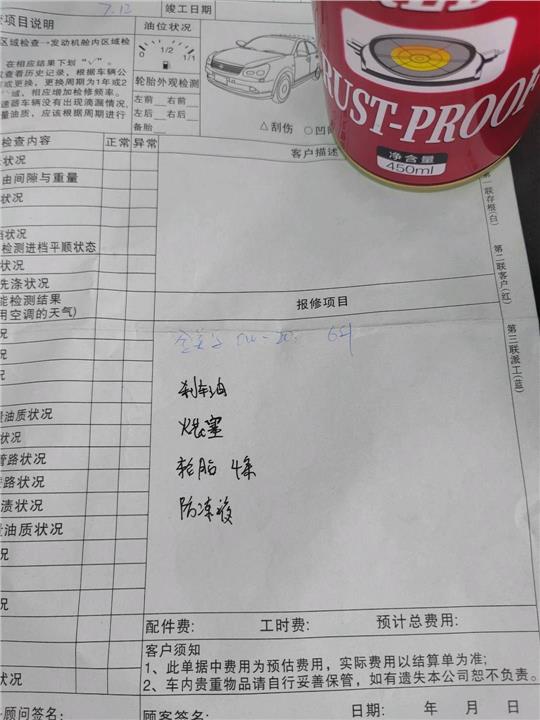 7.12
竣工日期
查项目说明
油位状况
区域检查→发动机舱内区域检
在相应结果下划"√"。
查看历史记录，根据车辆公
或更换，更换周期为1年或2
域，相应增加检修频率。
速器车辆没有出现滴漏情况，
量油质，应该根据周期进行
1/2
1/1
轮胎外观检测
左前 右前
左后 右后
备胎
△刮伤
○凹
RUST-PROOF
净含量
450ml
检查内容
正常
异常
客户描述
状况
由间隙与重量
状况
检测进档平顺状态
状况
洗涤状况
能检测结果
用空调的天气)
况
况
况
油质状况
状况
管路状况
管路状况
渍状况
油质状况
况
况
状况
第一联存根(白)
第二联客户(红)
第三联派工(蓝)
报修项目
刹车油
火花塞
轮胎 4条
防冻液
配件费:
工时费:
预计总费用:
客户须知
1、此单据中费用为预估费用，实际费用以结算单为准;
2、车内贵重物品请自行妥善保管，如有遗失本公司恕不负责。
顾问签名:
顾客签名:
日期: 年 月 日